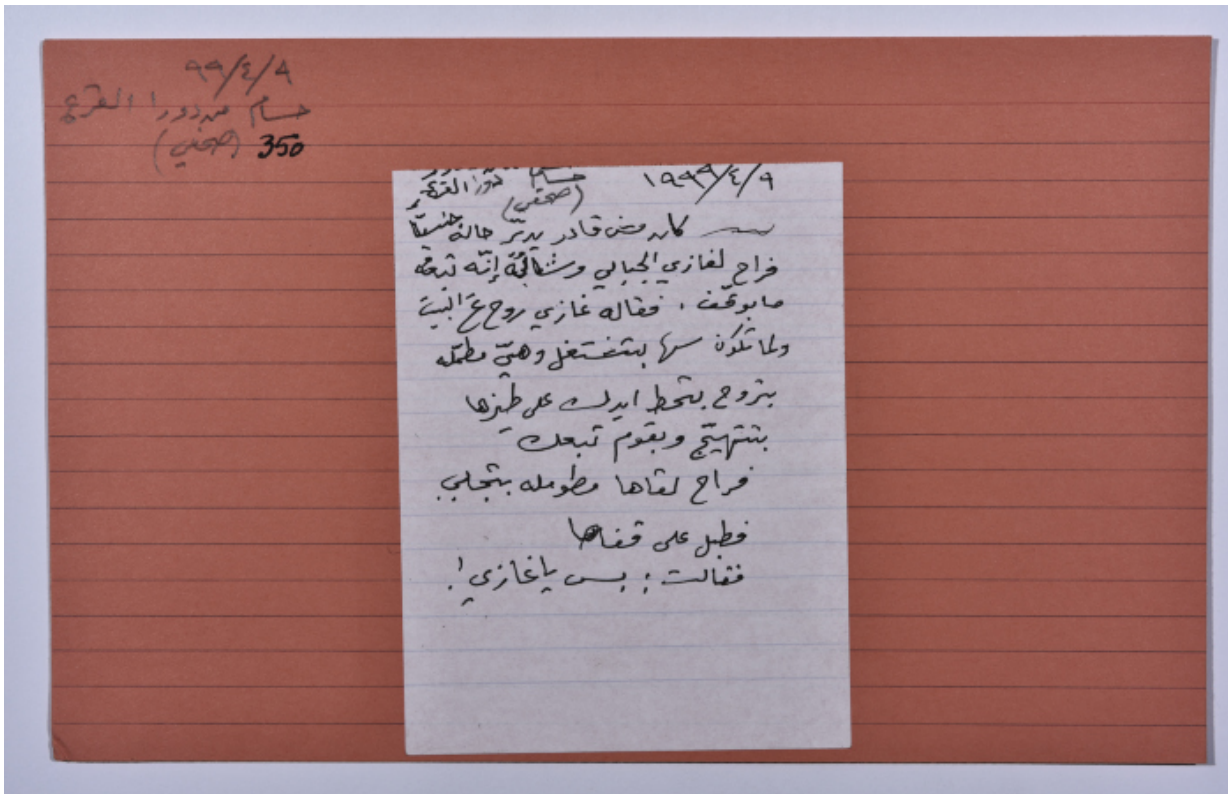 ٩٩/٤/٩
حسام من دورا القرع
350 (صحفي)
١٩٩٩/٤/٩ حسام دورا القرع
(صحفي)
كان مش قادر يدبّر حاله جنسيّا
فراح لغازي الجبالي وشكاله إنّه تبعه
ما بوقف. فقاله غازي روح عَ البيت
ولما تكون بتشتغل وهيّ مطمّله
بتروح بتحط ايدك على طيزها
بتتهيّج وبقوم تبعك
فراح لقاها مطومله بتجلي
فطبل على قفاها
فقالت: بس يا غازي!